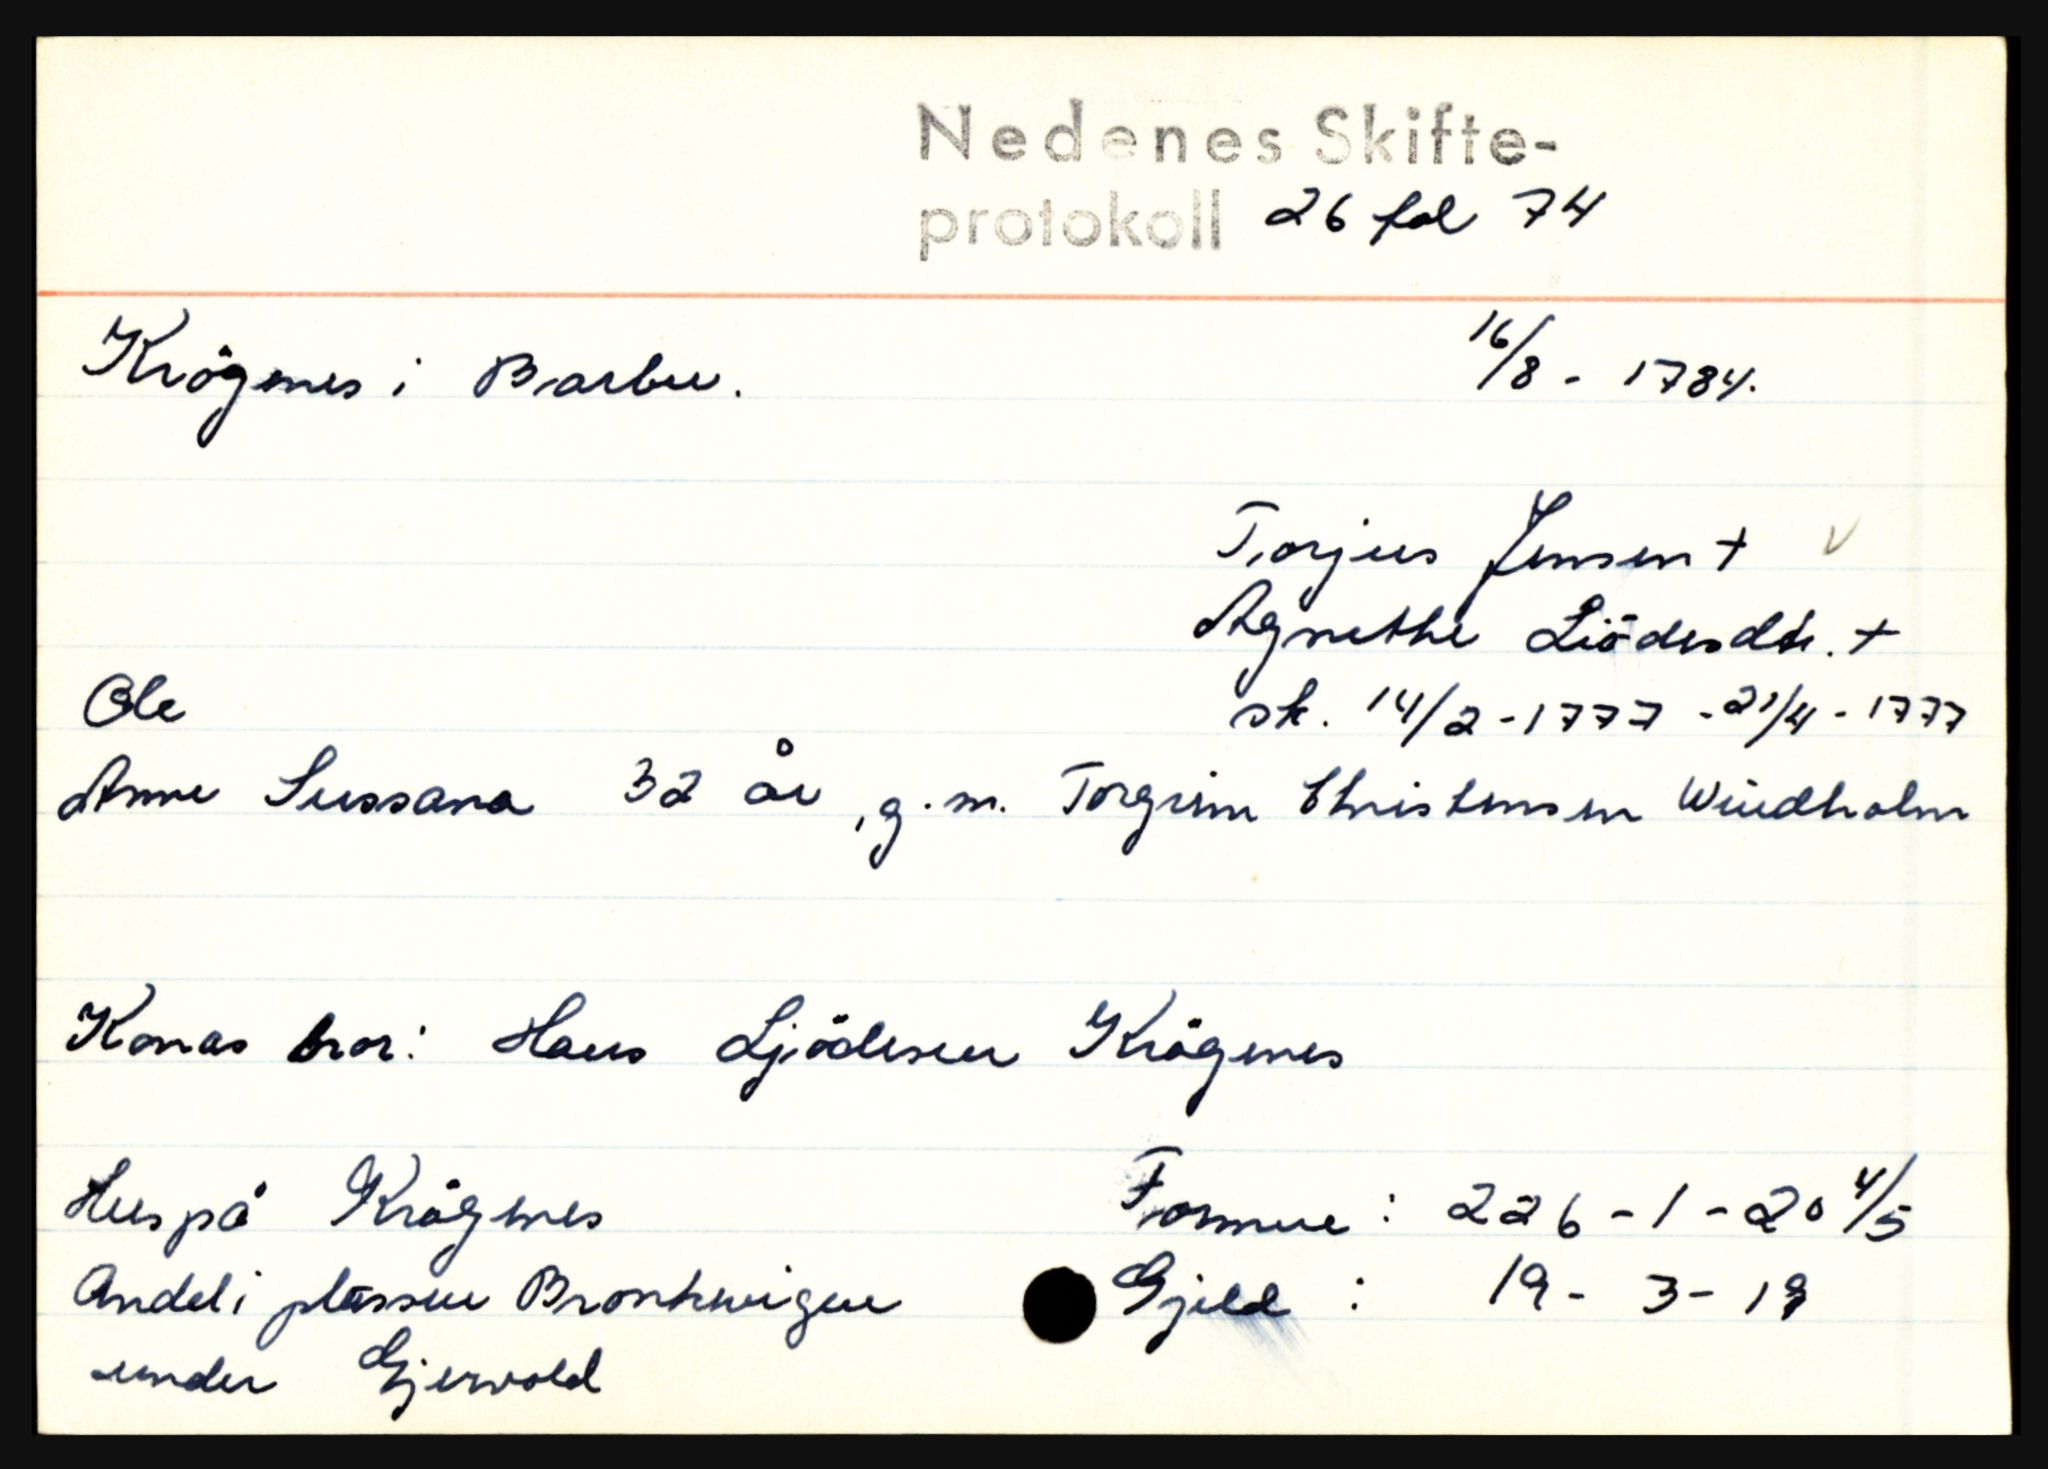 Nedenes Skifte-
protokoll 26 fol 74
Krögenes i Barbu. 16/8 - 1784.
Torjus Jensen +
Agnethe Liödesdtr. +
Ole sk. 14/2-1777 - 21/4 - 1777
Anne Sussana 32 år, g.m. Torgrim Christensen Windholm
Konas bror: Hans Ljödesen Krögenes
Hus på Krögenes Formue : 226-1-20 4/5
Andel i plassen Bronhvigen Gjeld : 19- 3- 19
under Gjervold